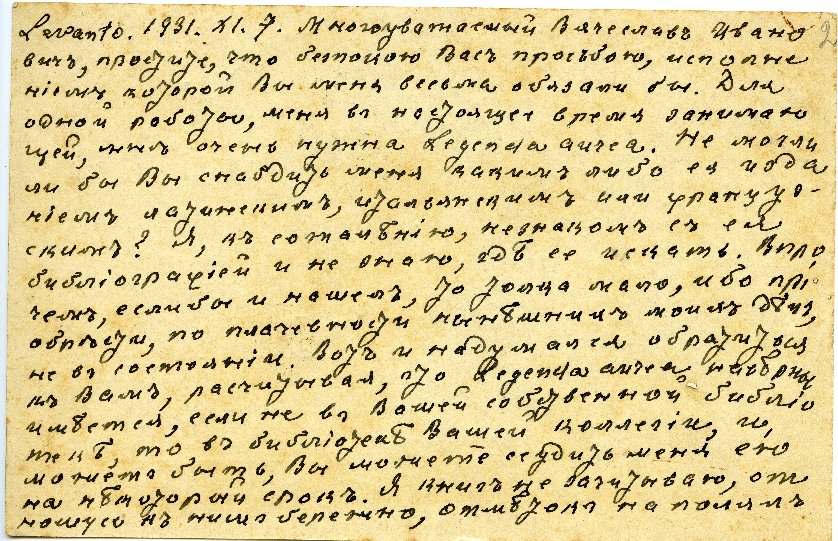 Levanto. 1931. XI. 7. Многоуважаемый Вячеславъ Ивано
вичъ, простите, что безпокою Васъ просьбою, исполне
ніемъ которой Вы меня весьма обязали бы. Для
одной работы, меня въ настоящее время занимаю
щей, мнѣ очень нужна Legenda aurea. Не могли
ли бы Вы снабдить меня какимъ либо ея изда
ніемъ латинскимъ, итальянскимъ или француз-
скимъ? Я, къ сожалѣнію, незнакомъ съ ея
библіографіей и не знаю, гдѣ ее искать. Впро
чемъ, если бы и нашелъ, то толка мало, ибо прі-
обрѣсти, по плачевности нынѣшнихъ моихъ дѣлъ,
не въ состояніи. Вотъ и надумался обратиться
къ Вамъ, расчитывая, что Legenda aurea навѣрно
имѣется, если не въ Вашей собственной библіо
текѣ, то въ библіотекѣ Вашей коллегіи, и,
можетъ быть, Вы можете ссудить меня ею
на нѣкоторый срокъ. Я книгъ не зачитываю, от
ношусь къ нимъ бережно, отмѣтокъ на поляхъ